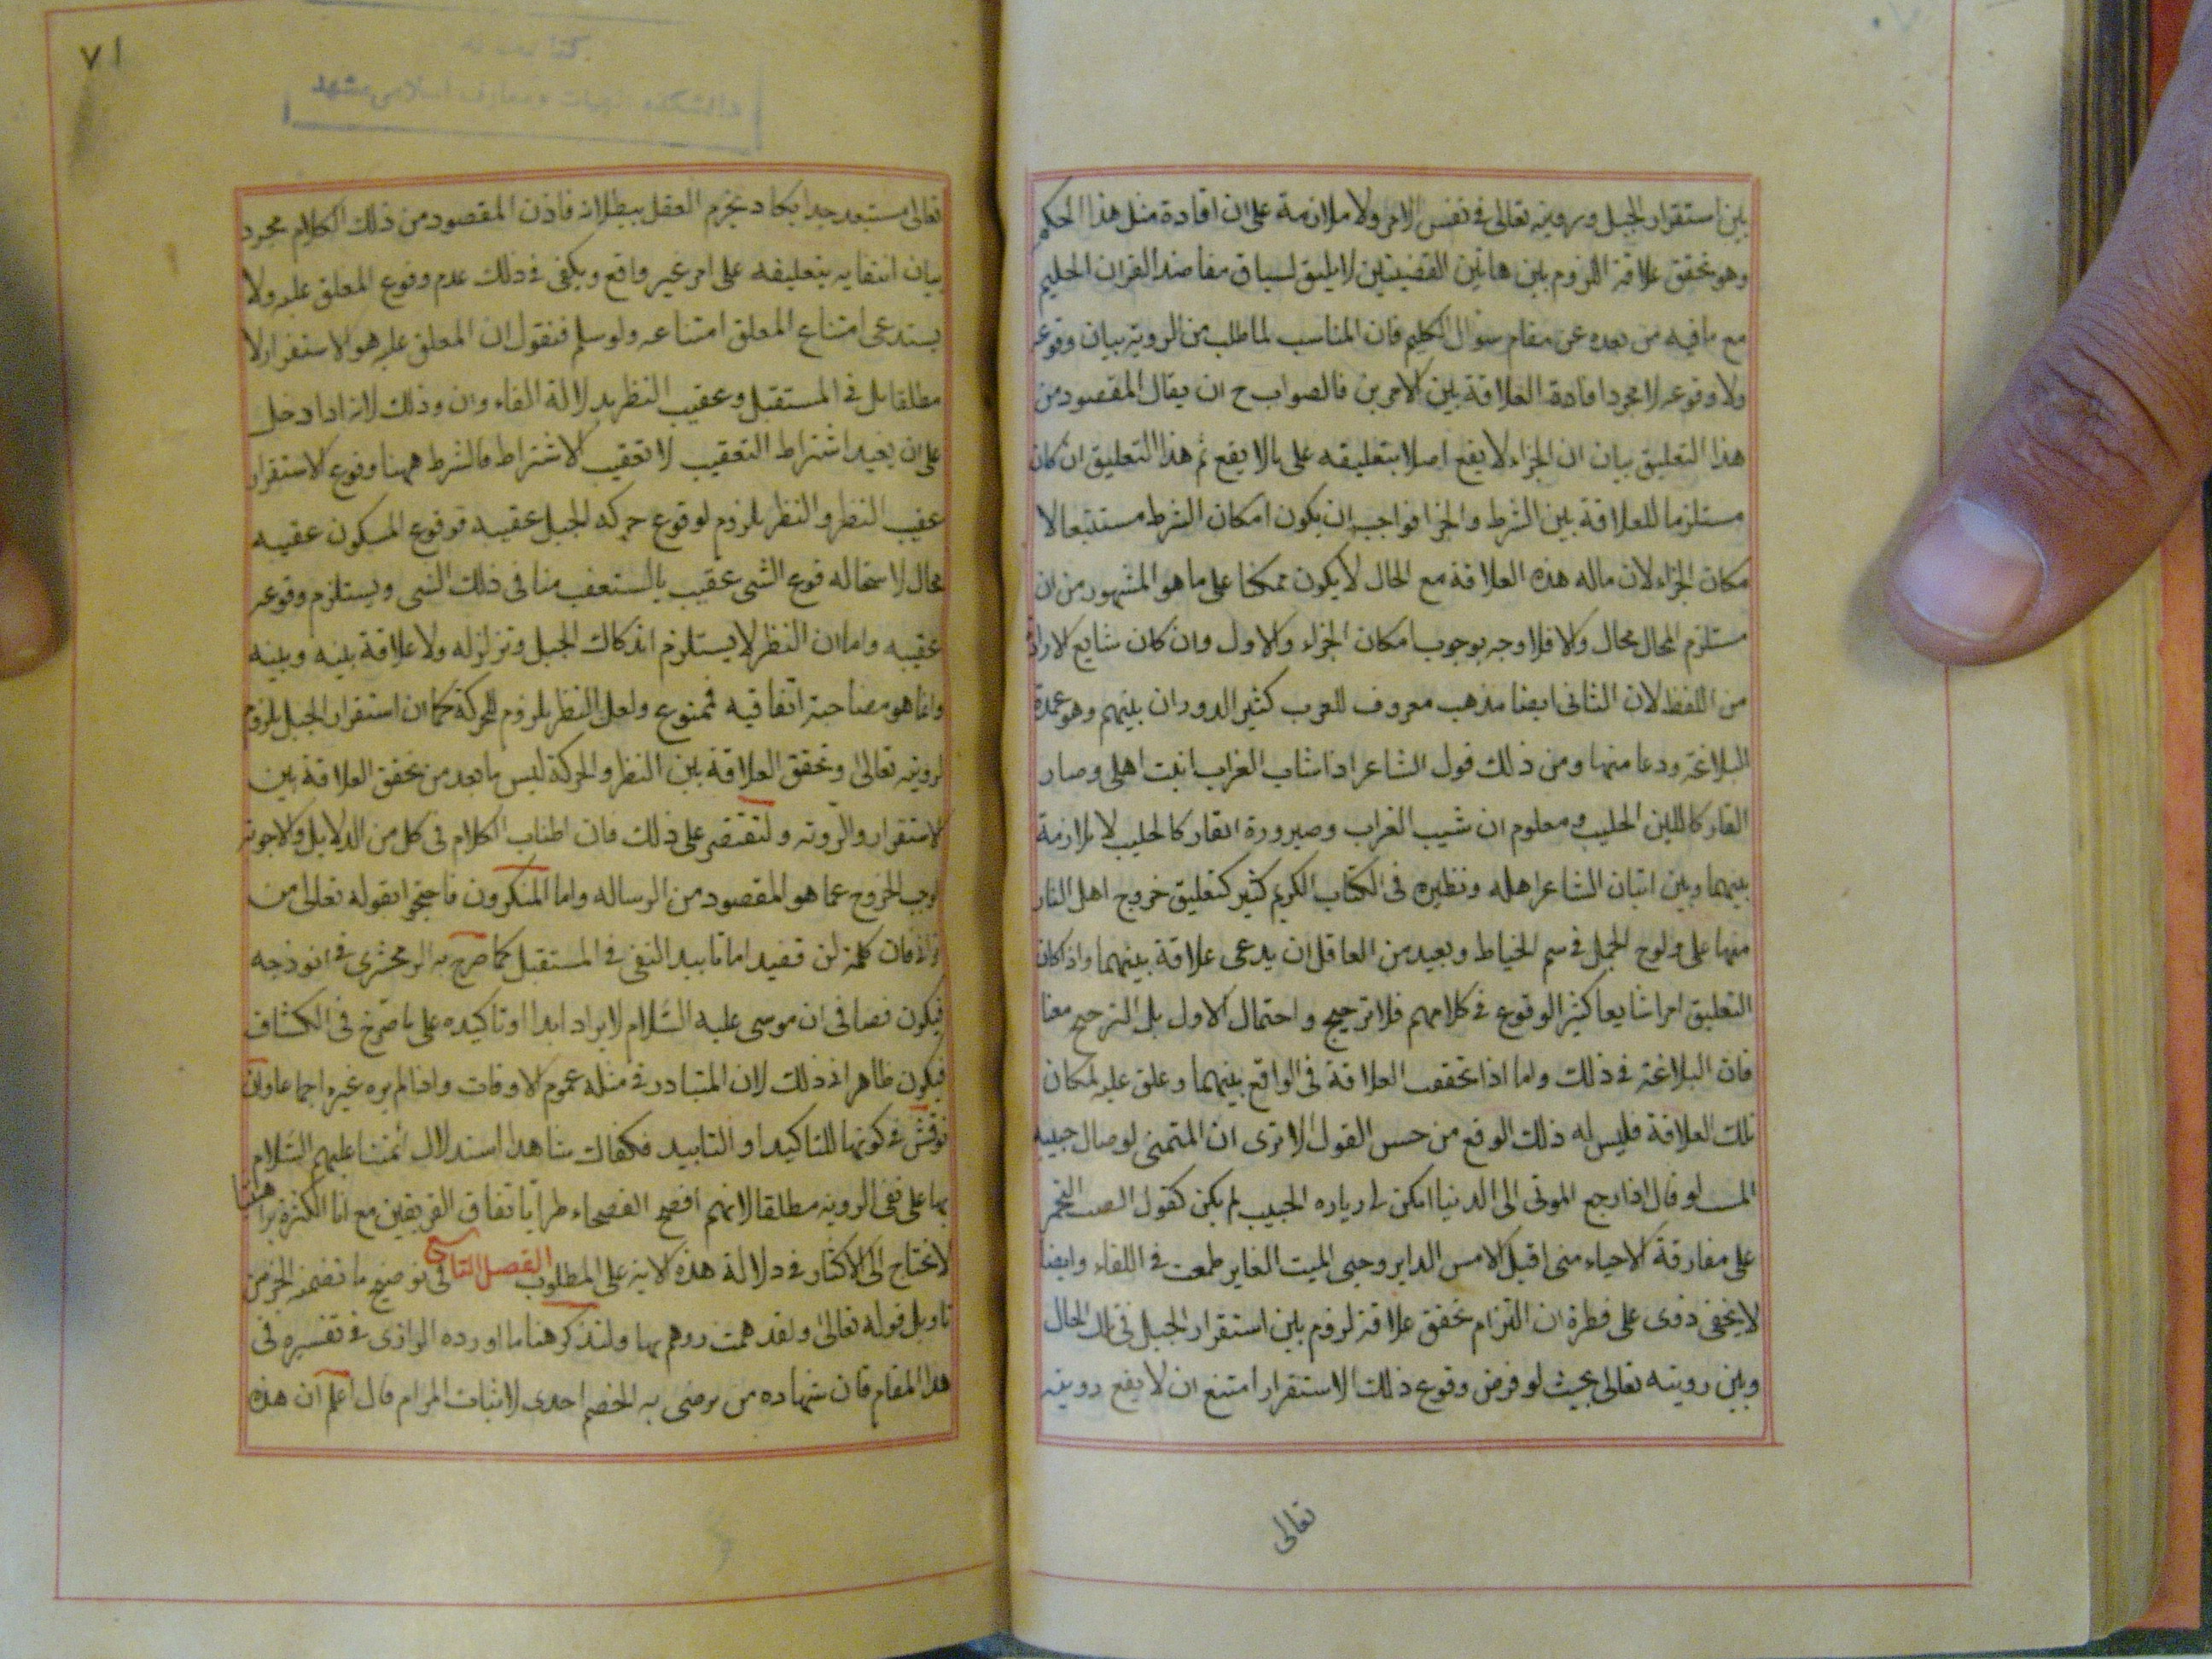 بين استقرار الجبل ورويته تعالى في نفس الامر ولا ملازمة على ان افادة مثل هذا الحكم
وهو تحقق علاقة اللزوم بين هاتين القضيتين لا يليق لسياق مقاصد القران الحليم
مع ما فيه من بعده عن مقام سوال الكليم فان المناسب لما طلب من الروية بيان وقوعه
ولا وقوعه لا مجرد افادة العلاقة بين الامرين فالصواب ح ان يقال المقصود من
هذا التعليق بيان ان الجزاء لا يقع اصلا بتعليقه على ما لا يقع ثم هذا التعليق ان كان
مستلزما للعلاقة بين الشرط والجزا فواجب ان يكون امكان الشرط مستتبعا لا
مكان الجزاء لان ماله هذه العلاقة مع الحال لا يكون ممكنا على ما هو المشهور من ان
مستلزم المحال محال والا فلا وجه بوجوب امكان الجزاء والاول وان كان شايع الارادة
من اللفظ لان الثانى ايضا مذهب معروف للعرب كثير الدوران بينهم وهو عمدة
البلاغة ودعامتها ومن ذلك قول الشاعر اذا شاب الغراب اتيت اهلى وصار
القار كاللبن الحليب ومعلوم ان شيب الغراب وصيرورة القار كالحليب لا ملازمة
بينهما وبين اتيان الشاعر اهله ونظيره فى الكتاب الكريم كثير كتعليق خروج اهل النار
منها على ولوج الجمل في سم الخياط وبعيد من العاقل ان يدعى علاقة بينهما واذا كان
التعليق امرا شايعا كثير الوقوع في كلامهم فلا ترجيح واحتمال الاول بل الترجيح معنا
فان البلاغة في ذلك واما اذا تحققت العلاقة فى الواقع بينهما وعلق عليه لمكان
تلك العلاقة فليس له ذلك الوقع من حسن القول الا ترى ان المتمنى لوصال حبيبه
الميت لو قال اذا رجع الموتى الى الدنيا امكن لى زيارة الحبيب لم يكن كقول الصب المتحسر
على مفارقة الاحياء متى اقبل الامس الدابر وحيى الميت الغابر طمعت في اللقاء وايضا
لا يخفى ذوى على فطرة ان التزام تحقق علاقة لزوم بين استقرار الجبل فى تلك الحال
وبين رويته تعالى بحيث لو فرض وقوع ذلك الاستقرار امتنع ان لا يقع رويته
تعالى
٧١
تعالى مستبعد جدا يكاد يجزم العقل ببطلانه فاذن المقصود من ذلك الكلام مجرد
بيان انتفايه بتعليقه على امر غير واقع ويكفى في ذلك عدم وقوع المعلق عليه ولا
يستدعى امتناع المعلق امتناعه ولو سلم فنقول ان المعلق عليه هو الاستقرار لا
مطلقا بل في المستقبل وعقيب النظر بدلالة الفاء وان وذلك لانه اذا دخل
على ان يفيد اشتراط التعقيب لا تعقيب الاشتراط فالشرط ههنا وقوع الاستقرار
عقيب النظر والنظر ملزوم لوقوع حركة الجبل عقيبه فوقوع السكون عقيبه
محال لاستحاله قوع الشى عقيب ما يستعقب منافى ذلك الشى ويستلزم وقوعه
عقيبه واما ان النظر لا يستلزم اندكاك الجبل وتزلزله ولا علاقة بينه وبينه
وانما هو مصاحبة اتفاقيه فممنوع ولعل النظر ملزوم للحركة كما ان استقرار الجبل ملزوم
لرويته تعالى وتحقق العلاقة بين النظر والحركة ليس بابعد من تحقق العلاقة بين
الاستقرار والروية ولنقتصر على ذلك فان اطناب الكلام فى كل من الدلايل والاجوبة
يوجب الخروج عما هو المقصود من الرساله واما المنكرون فاحتجوا بقوله تعالى لن
ترانى فان كلمة لن تفيد اما تابيد النفى في المستقبل كما صرح به الزمخشرى في انموذجه
فيكون نصا فى ان موسى عليه السلام لا يراه ابدا او تاكيده على ما صرح فى الكشاف
فيكون ظاهرا في ذلك لان المتبادر في مثله عموم الاوقات واذا لم يره غيره اجماعا وان
نوقش في كونها للتاكيد او التابيد فكفاك شاهدا استدلال ائمتنا عليهم السلام
بها على نفى الروية مطلقا لانهم افصح الفصحاء طرا باتفاق الفريقين مع انا لكثرة براهيننا
لا نحتاج الى الاكثار في دلالة هذه الاية على المطلوب الفصل التاسع فى توضيح ما تضمنه الخبر من
تاويل قوله تعالى ولقد همت به وهم بها ولنذكر هنا ما اورده الرازى في تفسيره فى
هذا المقام فان شهادة من يرضى به الخصم احدى لاثبات المرام قال اعلم ان هذه